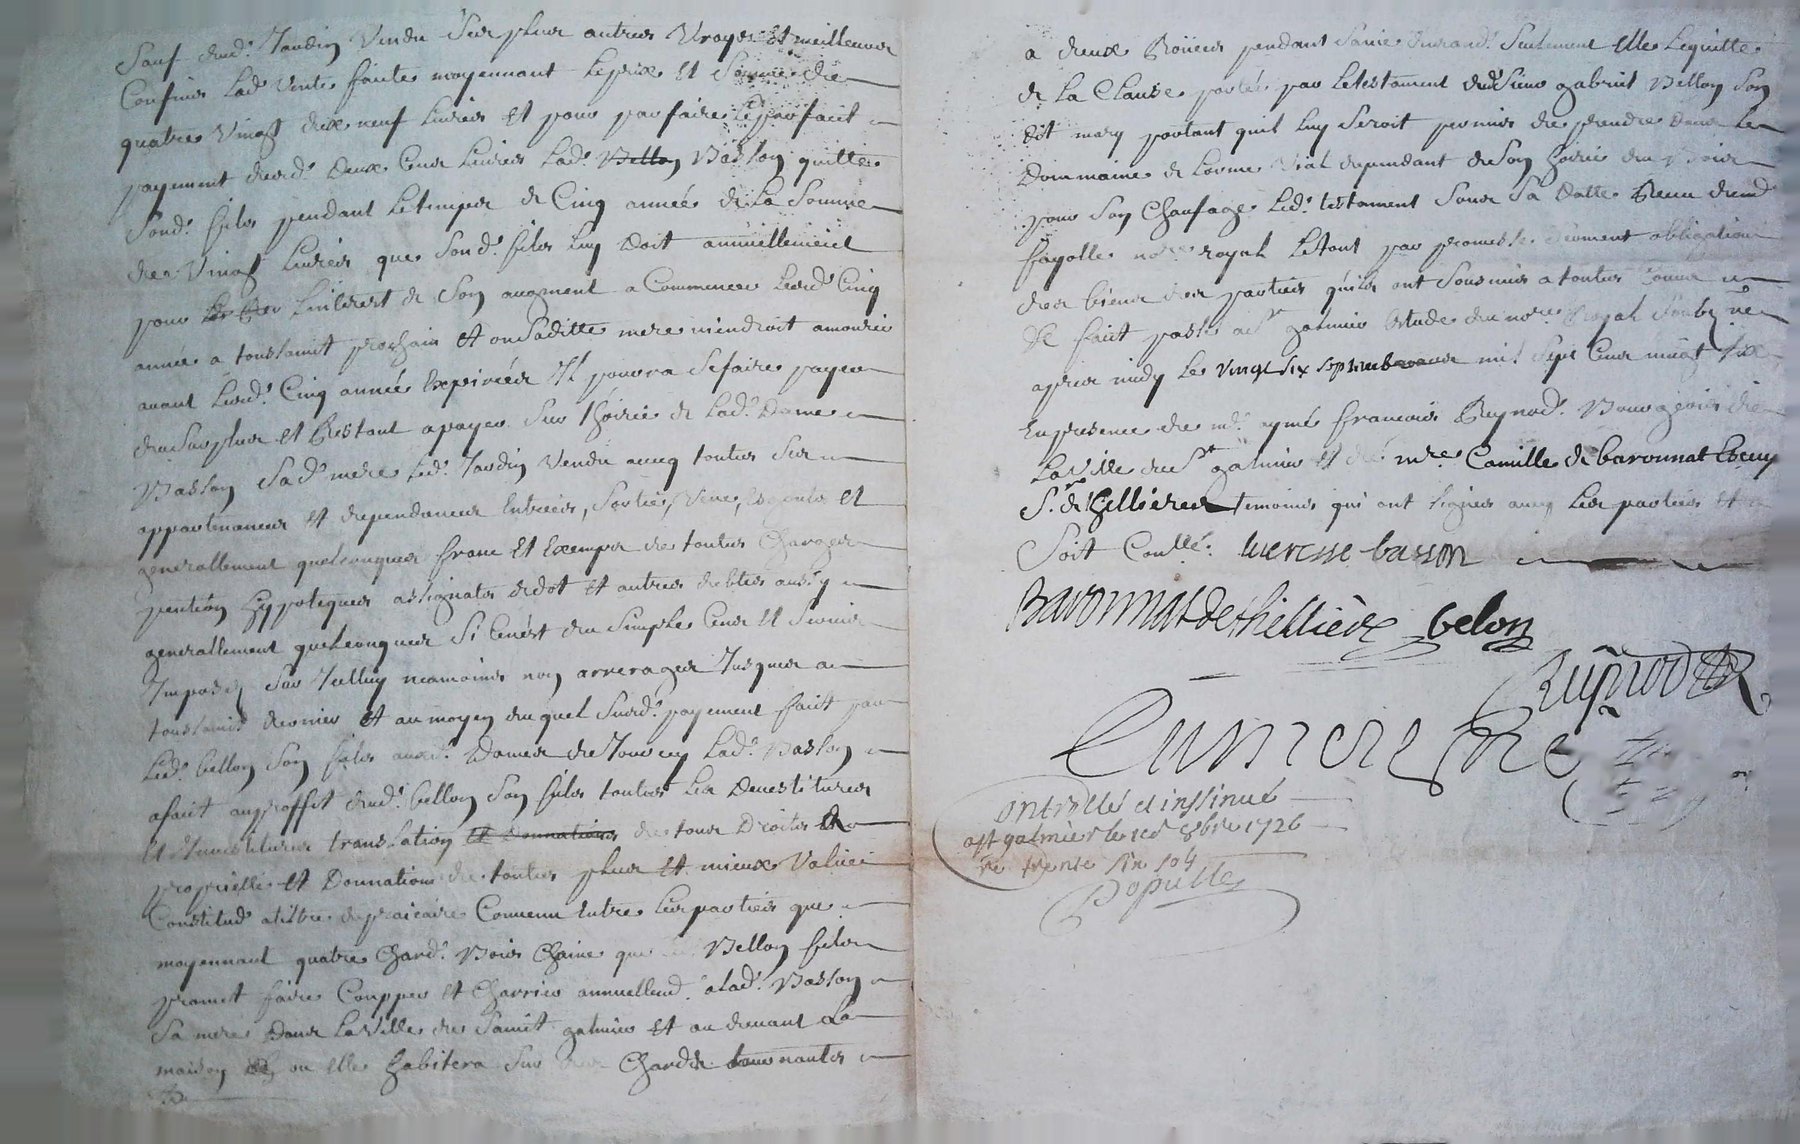 Sauf dud. Jardin Vendu Ses plus autres Vrayes Et meilleures
Confins Lad. Vente faite moyennant Le prix et Somme de
quatre Vingt dix neuf Livres et pour parfaire Le parfait
payement desd. Deux Cens Livres Lad. Bellon Basson quitte
Sond. fils pendant Le temps de Cinq année de La Somme
de Vingt Livres que Sond. fils luy Doit annuellement
pour Linterest de Son augment a Commencer Lesd. Cinq
année a toussaint prochain et ou Saditte mere viendroit a mourir
avant Lesd. Cinq année Expirées Il pourra Se faire payer
du Surplus et Restant a payer Sur Lhoirie de Lad. Dame
Basson Sad. mere Led. Jardin Vendu avecq toutes Ses
appartenances et dependances Entrées, Sorties, Vene, Esgouts et
generallement quelconques franc et Exempt de toutes Charges
pention hypoteques assignats de dot et autres debtes aussy
generallement quelconques Si Cenest du Simple Cens et Servis
Imposé Sur Icelluy neamoins non arrerages Jusques a
toussaint dernier et au moyen duquel Susd. payement faitt par
Led. bellon Son fils ausd. Dames de Jourcey Lad. Basson
a fait au proffit dud. bellon Son fils toutes Les Devestitures
et Investitures translation et Donnation de tous Droits et
proprietté et Donnation de toutes plus et mieux Values
Constitud a tiltre de precaire Convenu Entre Les parties que
moyennant quatre Chard. Bois Chaine que Bellon fils
promet faire Coupper et Charrier annuellemt. a Lad. Basson
Sa mere Dans La Ville de Saint galmier et au devant La
maison ou Elle habitera Sur des Chards tournantes
a deux Roües pendant Sa vie durand. Seulement Elle Le quitte
de La Clause portée par Le testament dud. Sieur gabriel Bellon Son
dit mary portant quil luy Seroit permis de prendre dans Le
Dommaine de Lorme Vial dependant de Son hoirie du Bois
pour Son Chaufage Led. testament Sous Sa Datte Receu dud.
fayolle nore. royal Le tout par promesse Serment obligation
des biens des parties quils ont Sousmis a toutes Cours
de faict passé a St. galmier Estude du nore. Royal Soubzne.
apres midy Le vingt six septembre mil Sept Cens vingt Six
En presence de md. aymé francois Reynod. Bourgeois de
La Ville de St. galmier et de mre. Camille de baronnat Ecuy
Sr. de thellieres temoins qui ont Signes avec Les parties et
Soit Conllé. lucresse basson
Baronnat de thellière belon
Reynod
Cunierre
Controllé et inssinué
a St galmier le 1er 8bre 1726
Re trente Six s 04
Populle